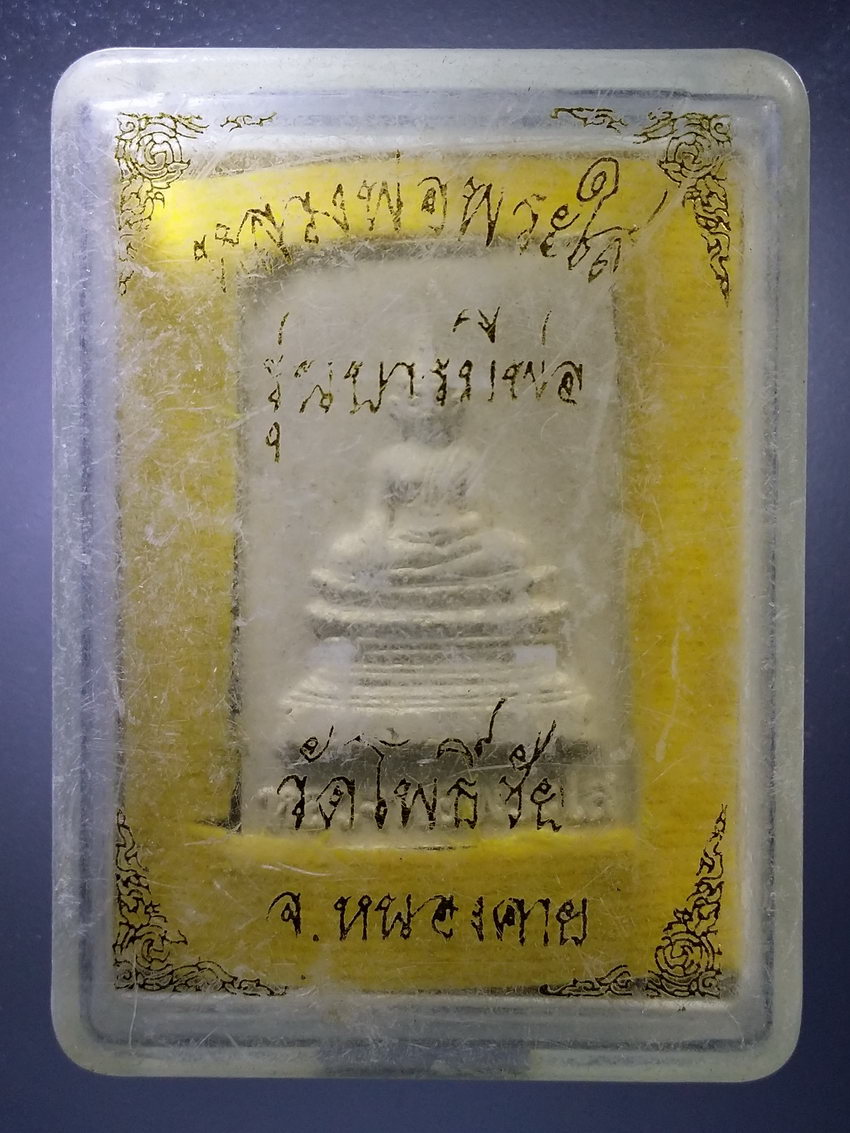 หลวงพ่อพระใส
รุ่นบารมีพ่อ
วัดโพธิ์ชัย
จ.หนองคาย